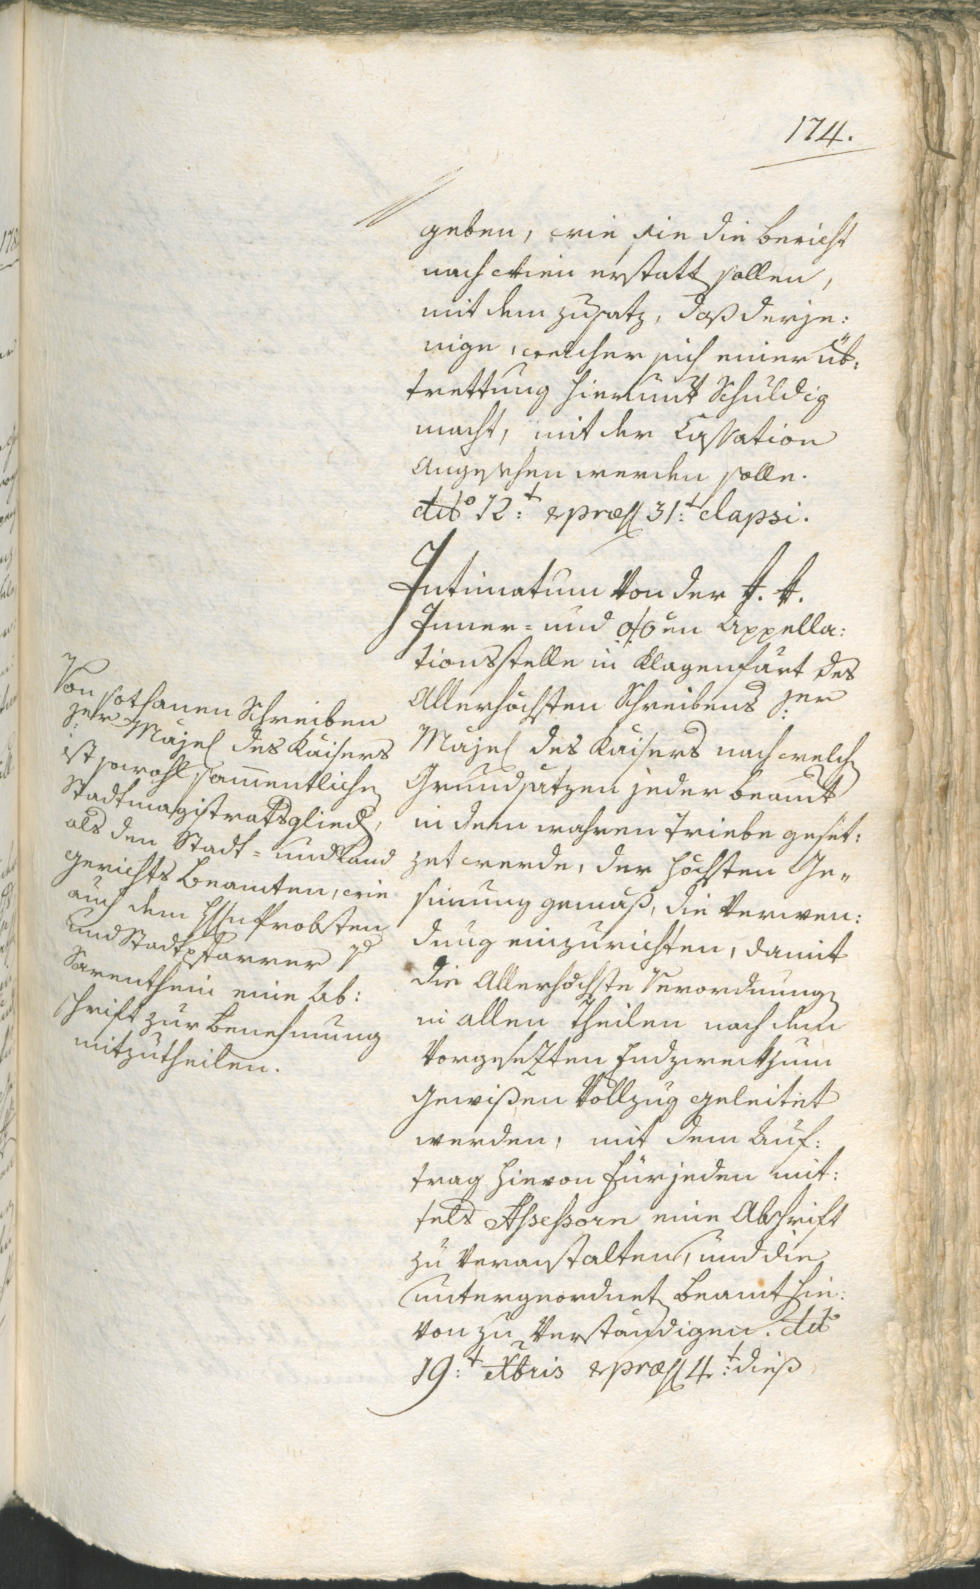 174.
geben, wie sie die Bericht
nach Wien erstatt sollen,
mit dem Zusatz, daß derje:
nige, welcher sich einer üb:
trettung hierunt Schuldig
macht, mit der Cassation
angesehen werden solle.
dto 12:t & præs 31:t elapsi.
Intimatum von der k. k.
Inner= und o/ö en Appella:
tionsstelle in Klagenfurt des
Allerhöchsten Schreibens Sr
Majes des Kaisers nach welch
Grundsätzen jeder beamt
in dem wahren Triebe geset:
zet werde, der höchsten Ge„
sinnung gemäß, die Verwen:
dung einzurichten, damit
die Allerhöchste Verordnung
in allen Theilen nach dem
Vorgesetzten Endzweck zum
Gewißen Vollzug geleitet
werden, mit dem Auf:
trag hievon für jeden mit:
tels Assessorn eine Abschrift
zu veranstalten, und die
untergeordnet beamt hie:
von zu verständigen. dto
19:t Xbris & præs 4:t dieß
Von sothanen Schreiben
Sr Majes des Kaisers
ist sowohl sammentliche
Stadtmagistratsglied,
als den Stadt= und Land
gerichts Beamten, wie
auch dem Hrn Probsten
und Stadtpfarrer v
Sarenthein eine Ab:
schrift zur Benehmung
mitzutheilen.